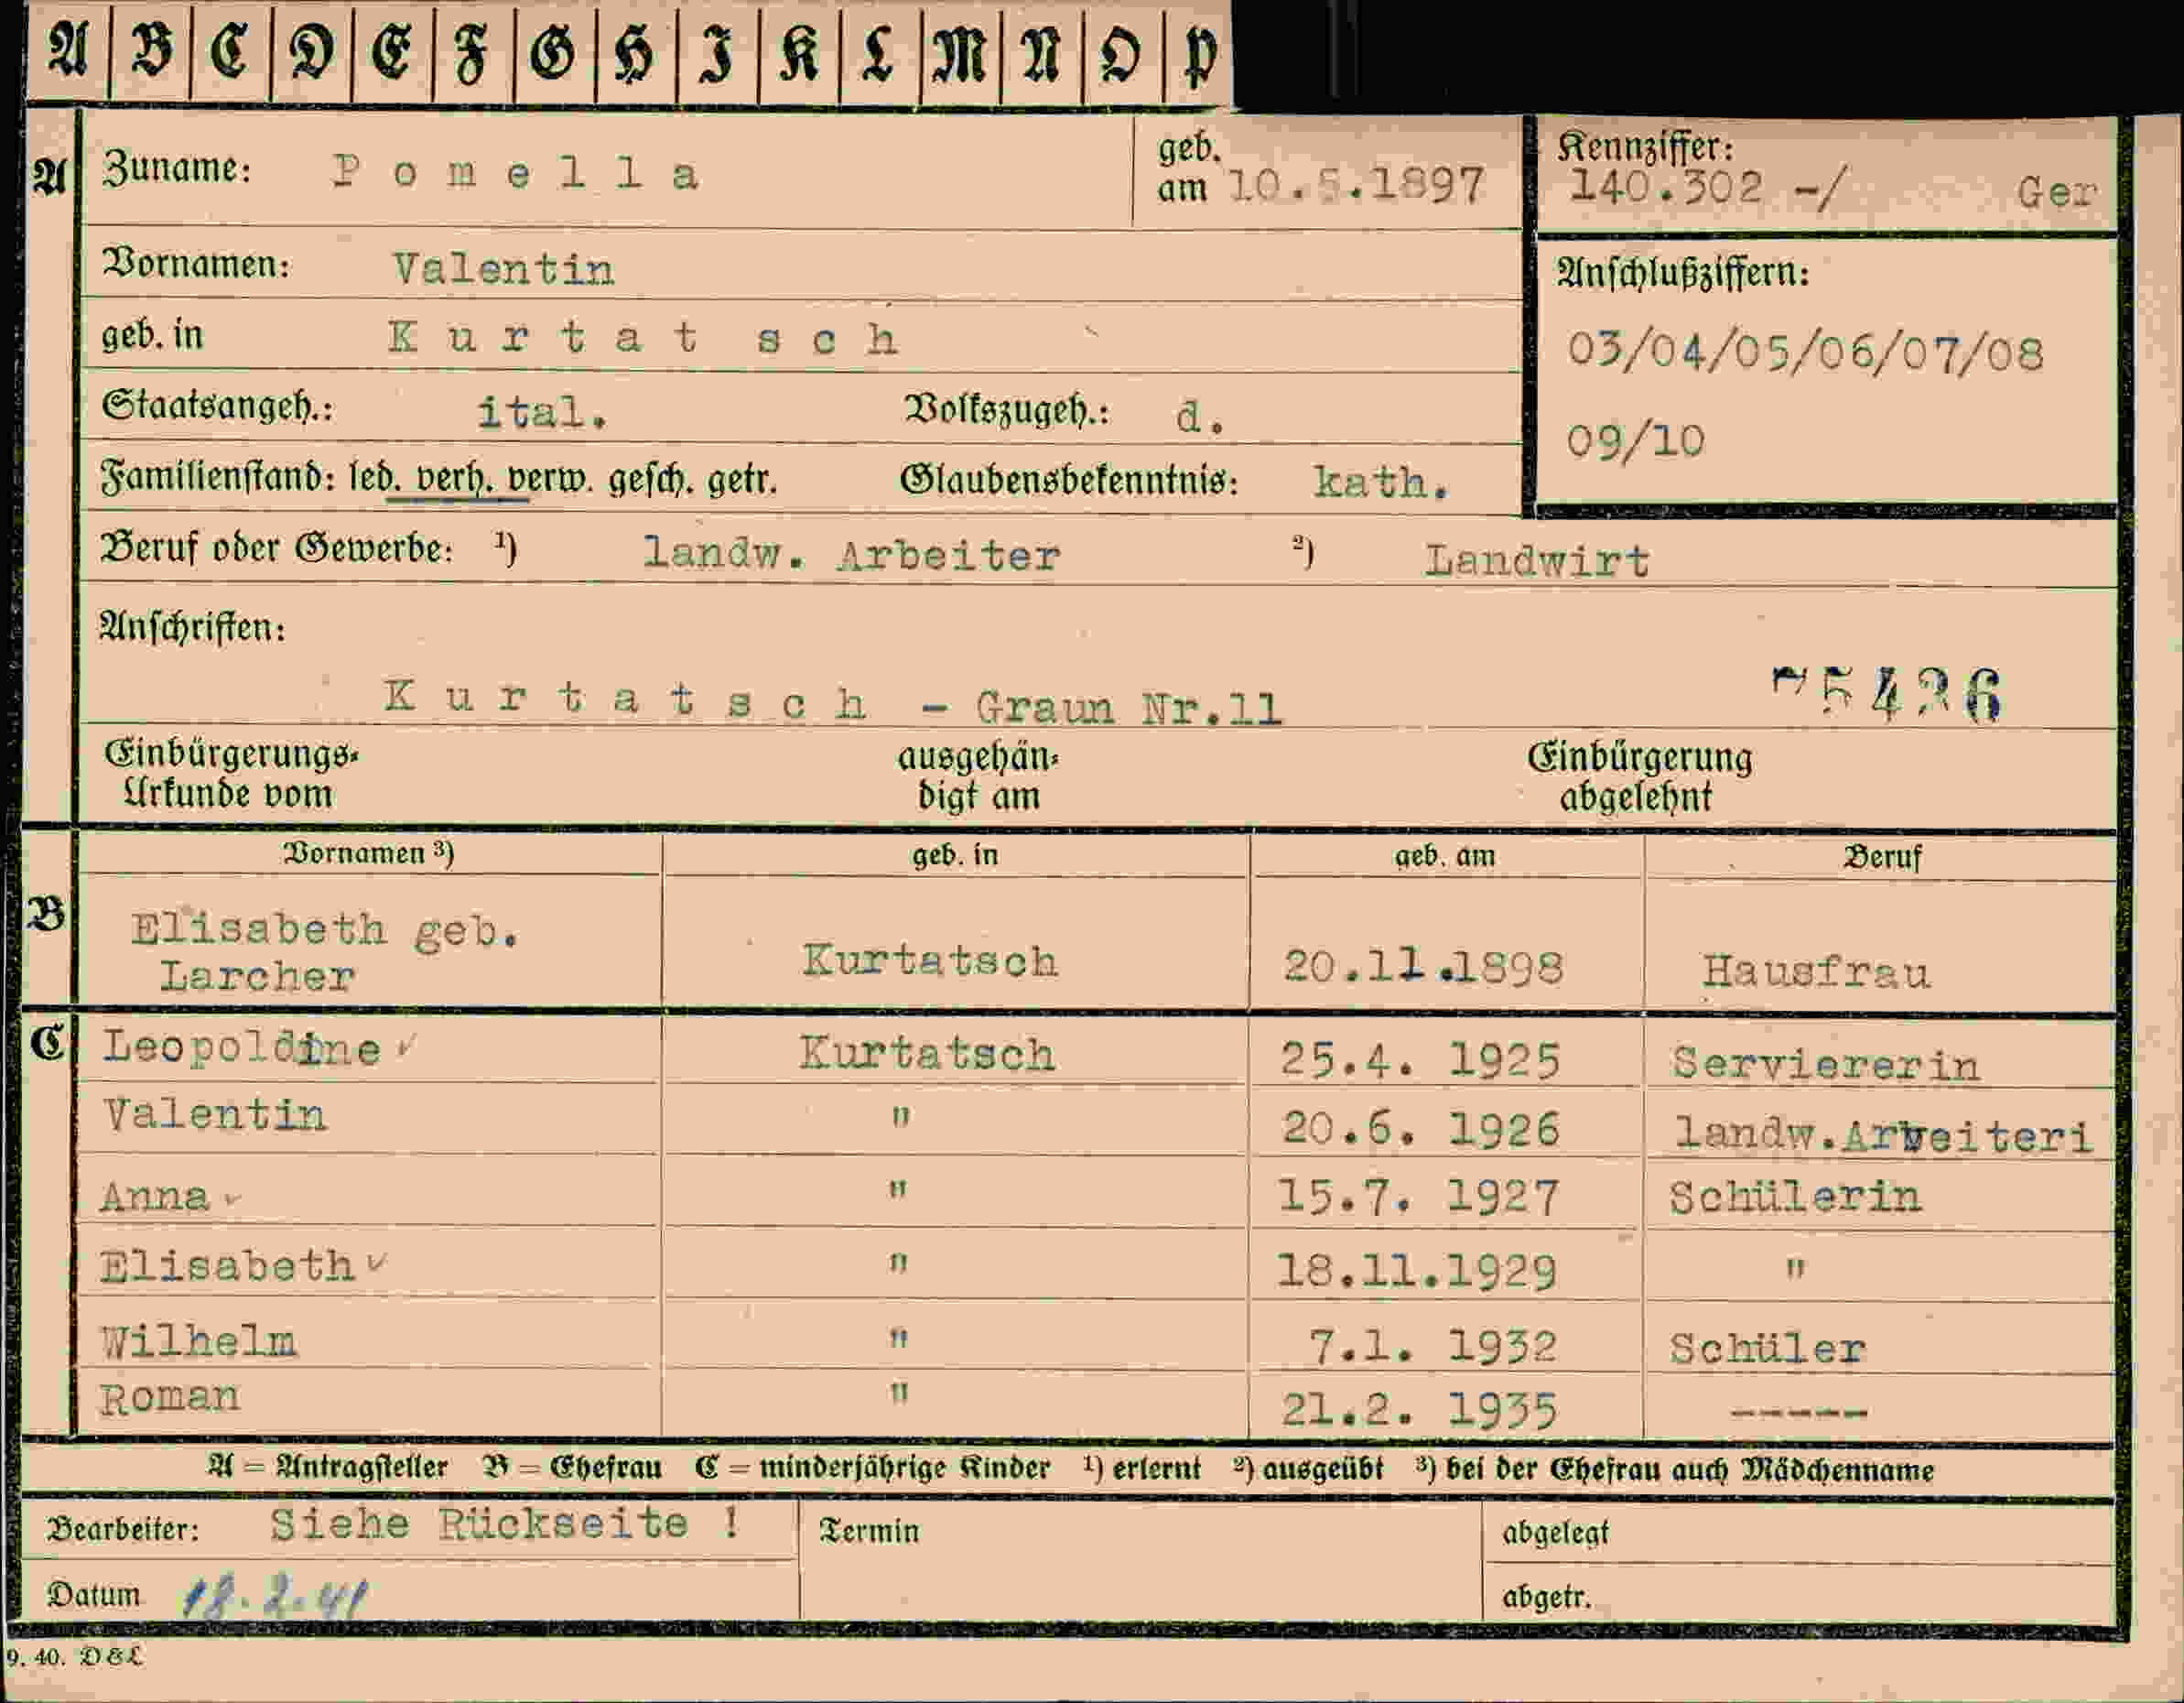 A B C D E F G H I K L M N O P
A Zuname: Pomella geb. am 10.5.1897
Kennziffer: 140.302 -/ Ger
Vornamen: Valentin
Anschlußziffern:
geb. in Kurtatsch
03/04/05/06/07/08
Staatsangeh.: ital. Volkszugeh.: d.
09/10
Familienstand: led. verh. verw. gesch. getr. Glaubensbekenntnis: kath.
Beruf oder Gewerbe: ¹) landw. Arbeiter ²) Landwirt
Anschriften:
Kurtatsch - Graun Nr.11 75436
Einbürgerungs- Urkunde vom ausgehän- digt am Einbürgerung abgelehnt
Vornamen ³) geb. in geb. am Beruf
B Elisabeth geb.
Larcher Kurtatsch 20.11.1898 Hausfrau
C Leopoldine ✓ Kurtatsch 25.4. 1925 Serviererin
Valentin " 20.6. 1926 landw.Arbeiteri
Anna ✓ " 15.7. 1927 Schülerin
Elisabeth ✓ " 18.11.1929 "
Wilhelm " 7.1. 1932 Schüler
Roman " 21.2. 1935 -----
A = Antragsteller B = Ehefrau C = minderjährige Kinder ¹) erlernt ²) ausgeübt ³) bei der Ehefrau auch Mädchenname
Bearbeiter: Siehe Rückseite ! Termin abgelegt
Datum 18.2.41 abgetr.
9. 40. D & L